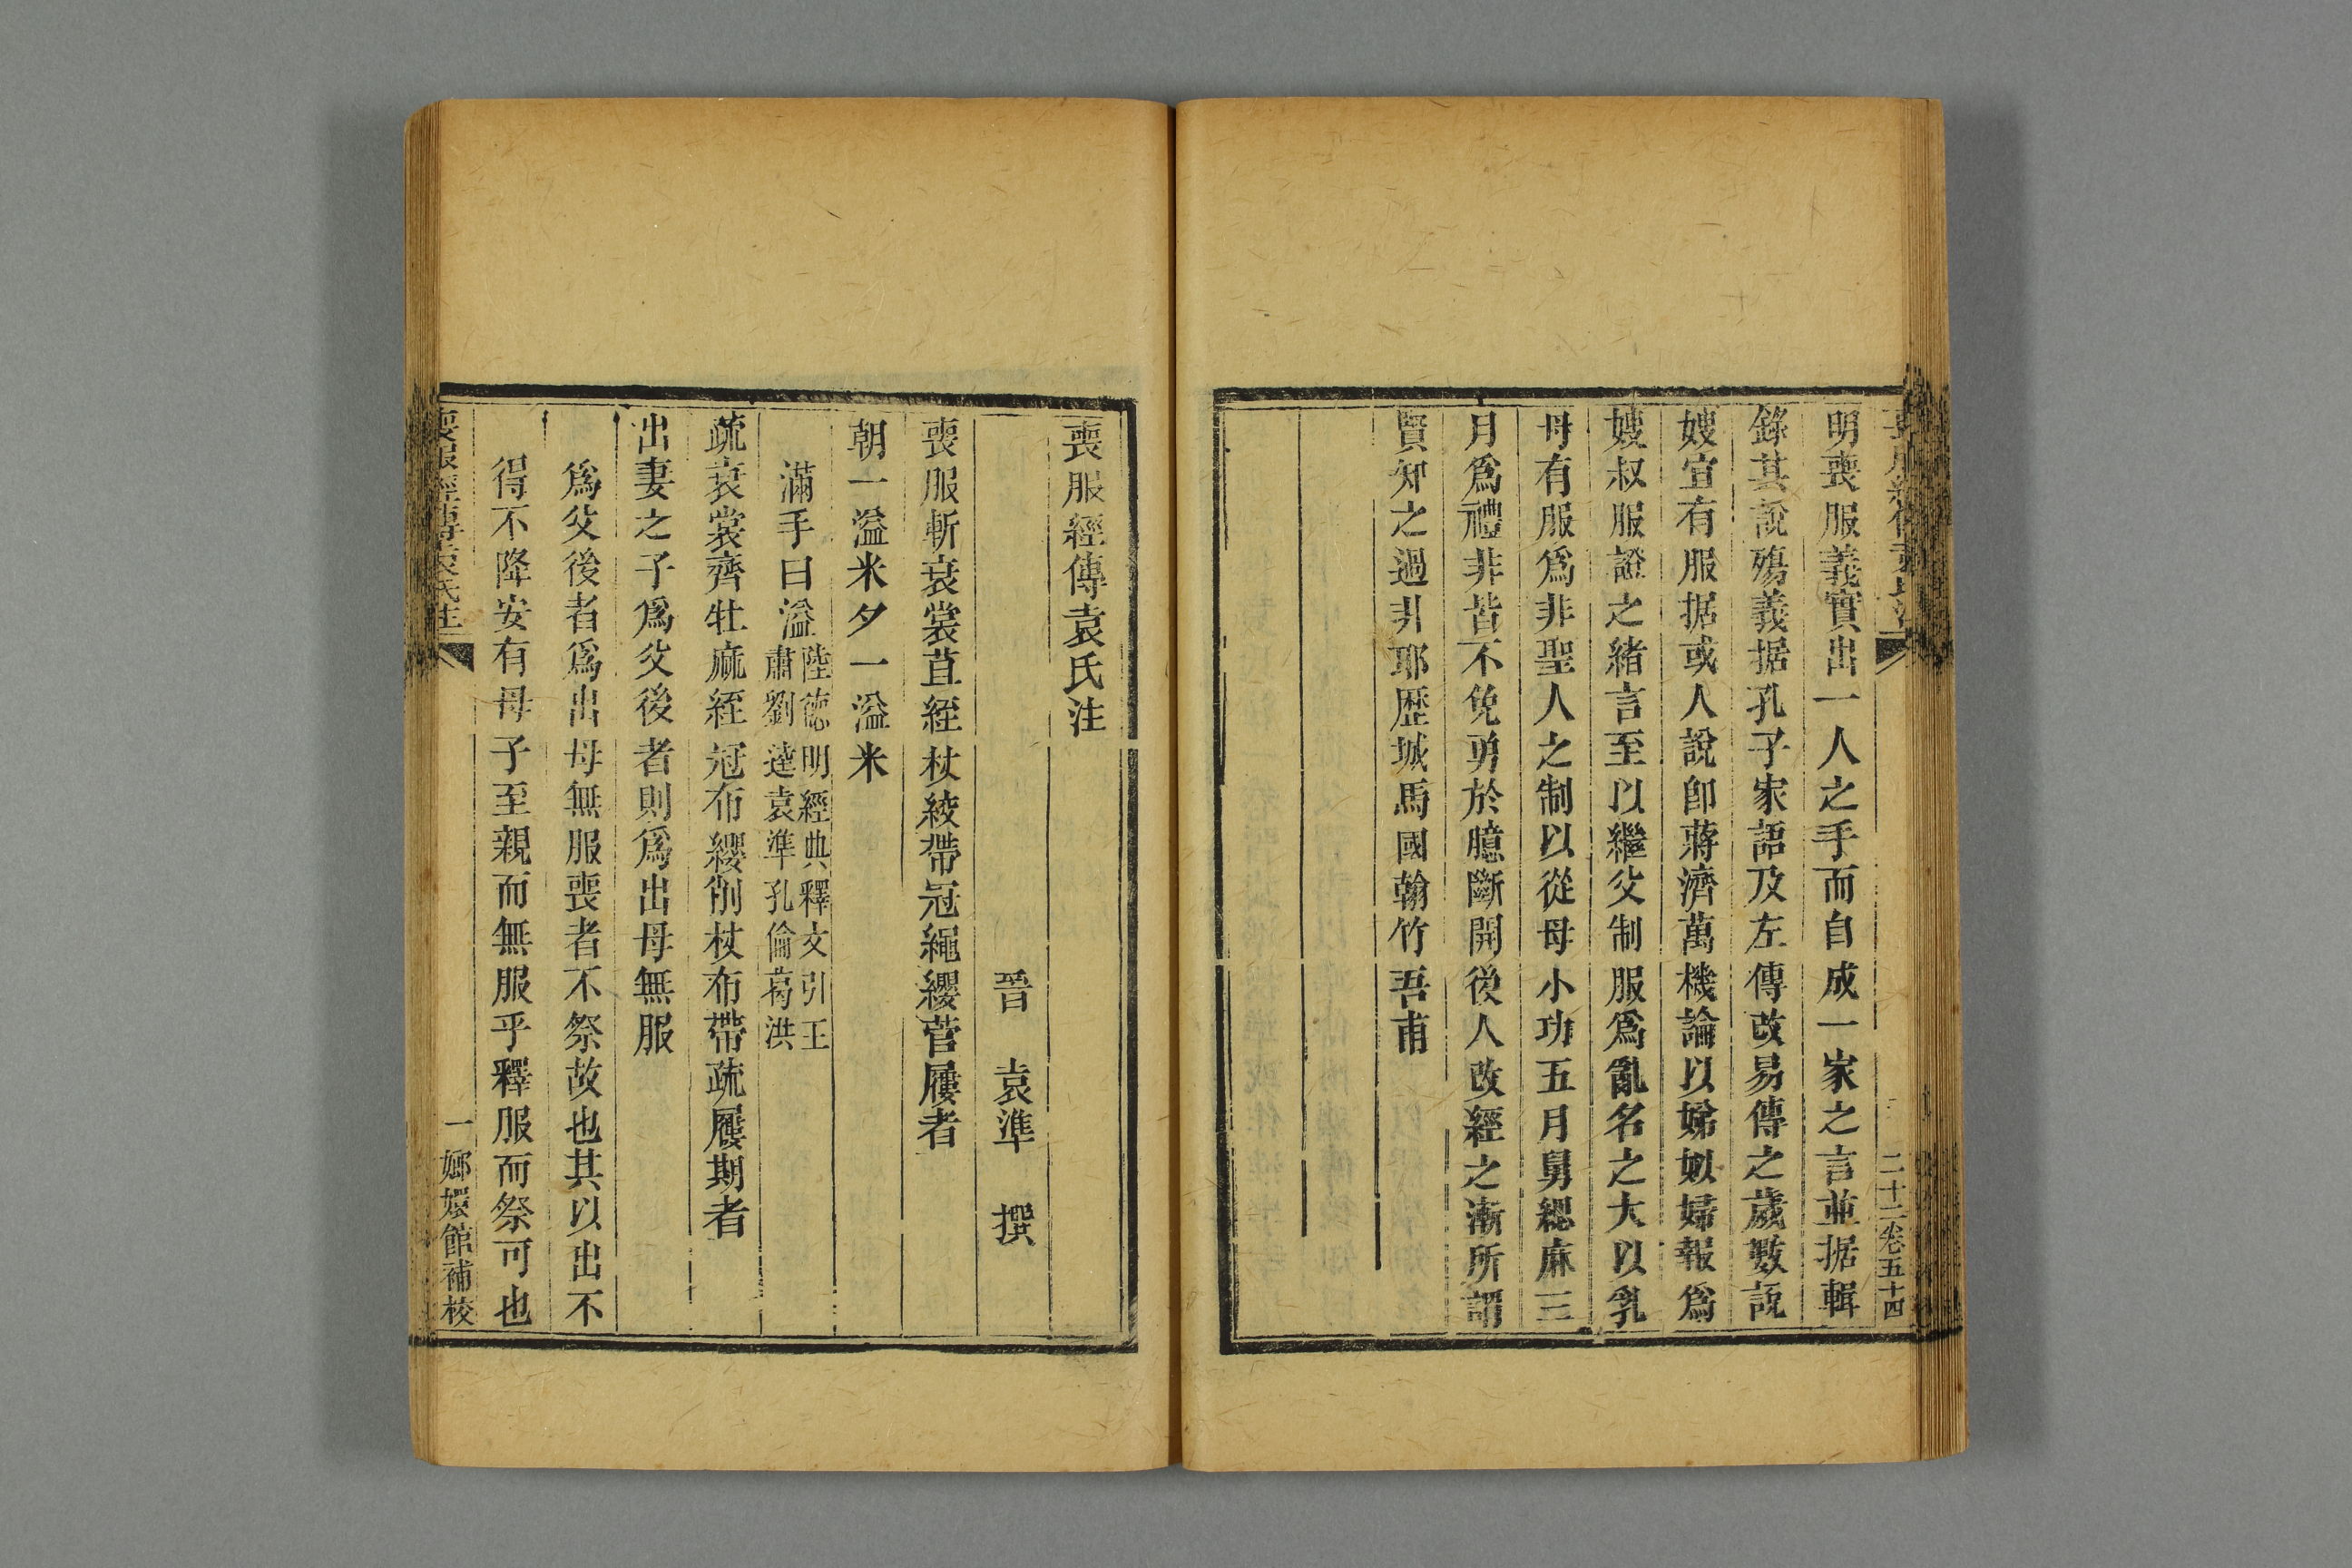 二十二
卷五十四
明喪服義實出一人之手而自成一家之言並据輯
錄其說殤義据孔子家語及左傳改易傳之歲數說
嫂宜有服据或人說卽蔣濟萬機論以娣姒婦報爲
嫂叔服證之緒言至以繼父制服爲亂名之大以乳
母有服爲非聖人之制以從母小功五月舅緦麻三
月爲禮非皆不免勇於臆斷開後人改經之漸所謂
賢知之過非耶歷城馬國翰竹吾甫
喪服經傳袁氏注
晉 袁準 撰
喪服斬衰裳苴絰杖絞帶冠繩纓菅屨者
朝一溢米夕一溢米
滿手曰溢陸德明經典釋文引王
肅劉逵袁準孔倫葛洪
疏衰裳齊牡麻絰冠布纓削杖布帶疏屨期者
出妻之子爲父後者則爲出母無服
爲父後者爲出母無服喪者不祭故也其以出不
得不降安有母子至親而無服乎釋服而祭可也
喪服經傳袁氏注
一
嫏嬛館補校